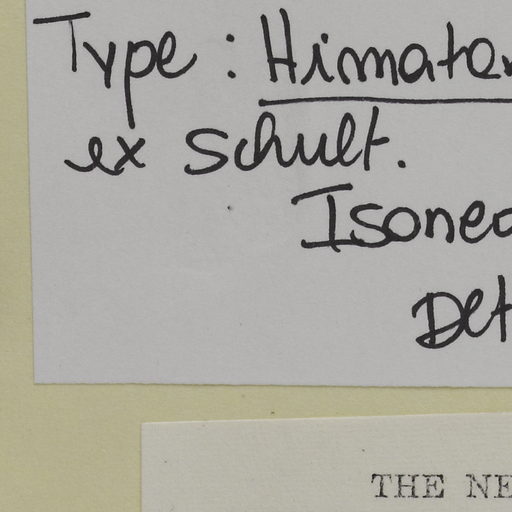 Type : Himate
ex Schult.
Isone
Det
THE NE